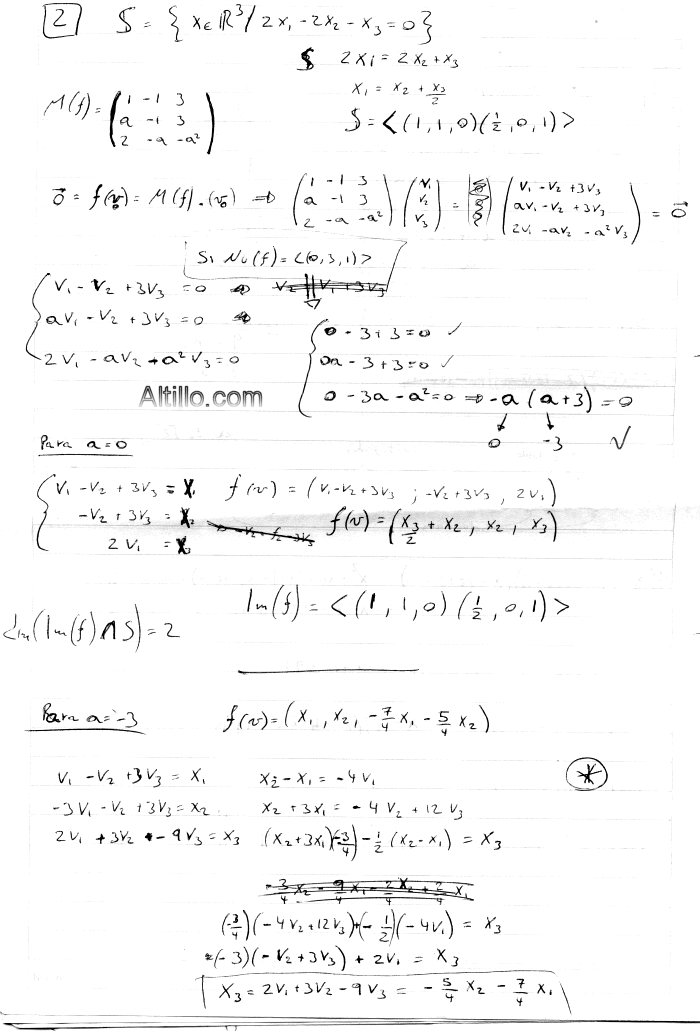 2 S = { x ∈ ℝ³ / 2x₁ - 2x₂ - x₃ = 0 }
2x₁ = 2x₂ + x₃
x₁ = x₂ + x₃/2
M(f) = ( 1 -1 3 / a -1 3 / 2 -a -a² )
S = < (1, 1, 0) (1/2, 0, 1) >
0⃗ = f(v₀) = M(f) . (v₀) ⇒ ( 1 -1 3 / a -1 3 / 2 -a -a² ) ( v₁ / v₂ / v₃ ) = ( v₁ - v₂ + 3v₃ / av₁ - v₂ + 3v₃ / 2v₁ - av₂ - a²v₃ ) = 0⃗
Si Nu(f) = <(0, 3, 1)>
v₁ - v₂ + 3v₃ = 0 ⇒
av₁ - v₂ + 3v₃ = 0
2v₁ - av₂ + a²v₃ = 0
0 - 3 + 3 = 0 ✓
0a - 3 + 3 = 0 ✓
0 - 3a - a² = 0 ⇒ -a (a + 3) = 0
0 -3 ✓
Altillo.com
Para a = 0
v₁ - v₂ + 3v₃ = x₁ f(v) = (v₁ - v₂ + 3v₃ ; -v₂ + 3v₃ , 2v₁)
-v₂ + 3v₃ = x₂ f(v) = (x₃/2 + x₂ , x₂ , x₃)
2v₁ = x₃
Im(f) = < (1, 1, 0) (1/2, 0, 1) >
dim(Im(f) ∩ S) = 2
Para a = -3 f(v) = (x₁ , x₂ , -7/4 x₁ - 5/4 x₂)
v₁ - v₂ + 3v₃ = x₁ x₂ - x₁ = -4v₁ *
-3v₁ - v₂ + 3v₃ = x₂ x₂ + 3x₁ = -4v₂ + 12v₃
2v₁ + 3v₂ - 9v₃ = x₃ (x₂ + 3x₁)(-3/4) - 1/2 (x₂ - x₁) = x₃
(-3/4)(-4v₂ + 12v₃) + (-1/2)(-4v₁) = x₃
(-3)(-v₂ + 3v₃) + 2v₁ = x₃
x₃ = 2v₁ + 3v₂ - 9v₃ = -5/4 x₂ - 7/4 x₁